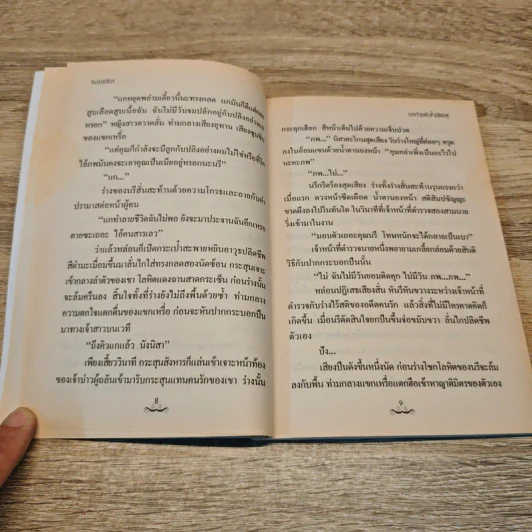 "แกหยุดพล่ามเดี๋ยวนี้นะทรงกลด แกมันก็ดีแต่คอย
สูบเลือดสูบเนื้อฉัน ฉันไม่มีวันจมปลักอยู่กับปลิงอย่าง
หรอก" หญิงสาวตวาดลั่น ท่ามกลางเสียงอุทาน เสียงซุบซิบ
ของแขกเหรื่อ
"แต่คุณก็กำลังจะมีลูกกับปลิงอย่างผมไม่ใช่หรือที่รัก
ไอ้ภพมันคงจะเอาคุณเป็นเมียอยู่หรอกนะนรี"
"แก..."
ร่างของนรีสั่นสะท้านด้วยความโกรธและอายกับคำ
ปรามาสต่อหน้าผู้คน
"แกทำลายชีวิตฉันไม่พอ ยังจะมาประจานฉันอีกเหรอ
ตายซะเถอะ ไอ้คนสารเลว"
ว่าแล้วหล่อนก็เปิดกระเป๋าสะพายหยิบอาวุธปลิดชีพ
สีดำมะเมื่อมขึ้นมาลั่นไกใส่ทรงกลดสองนัดซ้อน กระสุนเจาะ
เข้ากลางลำตัวของเขา โลหิตแดงฉานสาดกระเซ็น ก่อนร่างนั้น
จะล้มครืนลง สิ้นใจทั้งที่ร่างยังไม่ถึงพื้นด้วยซ้ำ ท่ามกลาง
ความตกใจแตกตื่นของแขกเหรื่อ ก่อนจะหันปากกระบอกปืน
มาทางเจ้าสาวบนเวที
"ถึงคิวแกแล้ว นังนิสา"
เพียงเสี้ยววินาที กระสุนสังหารก็แล่นเข้าเจาะหน้าท้อง
ของเจ้าบ่าวผู้ถลันเข้ามารับกระสุนแทนคนรักของเขา ร่างนั้น
8
กระตุกเฮือก สีหน้าเต็มไปด้วยความเจ็บปวด
"ภพ..." นิสาตะโกนสุดเสียง รับร่างใหญ่ที่ค่อยๆ ทรุด
ลงในอ้อมแขนด้วยน้ำตานองหน้า "คุณอย่าเพิ่งเป็นอะไรไป
นะคะภพ"
"ภพ...ไม่..."
นรีกรีดร้องสุดเสียง ร่างทั้งร่างสั่นสะท้านรุนแรงกว่า
เมื่อแรก ดวงหน้าซีดเผือด น้ำตานองหน้า สติสัมปชัญญะ
ขาดผึงลงไปในทันใด ในวินาทีที่เจ้าหน้าที่ตำรวจสองสามนาย
วิ่งเข้ามาในงาน
"มอบตัวเถอะคุณนรี โทษหนักจะได้กลายเป็นเบา"
เจ้าหน้าที่ตำรวจนายหนึ่งพยายามเกลี้ยกล่อมด้วยสันติ
วิธีกับปากกระบอกปืนนั้น
"ไม่ ฉันไม่มีวันยอมติดคุก ไม่มีวัน ภพ...ภพ..."
หล่อนปฏิเสธเสียงลั่น หันรีหันขวางระหว่างเจ้าหน้าที่
ตำรวจกับร่างไร้สติของอดีตคนรัก แล้วสิ่งที่ไม่มีใครคาดคิดก็
เกิดขึ้น เมื่อนรีตัดสินใจยกปืนขึ้นจ่อขมับขวา ลั่นไกปลิดชีพ
ตัวเอง
ปัง...
เสียงปืนดังขึ้นหนึ่งนัด ก่อนร่างชโลหิตของนรีจะล้ม
ลงกับพื้น ท่ามกลางแขกเหรื่อแตกฮือเข้าหาญาติมิตรของตัวเอง
9